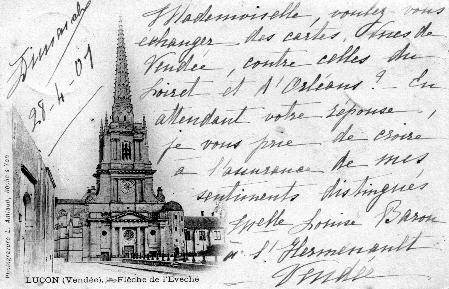 Dimanche
28-4-01
Mademoiselle, voulez vous
echanger des cartes, Vues de
Vendée, contre celles du
Loiret et d'Orléans? En
attendant votre réponse,
je vous prie de croire
a l'assurance de mes
sentiments distingués
Melle Louise Baron
a l'Hermenault
Vendée
LUÇON (Vendée). Flèche de l'Eveché